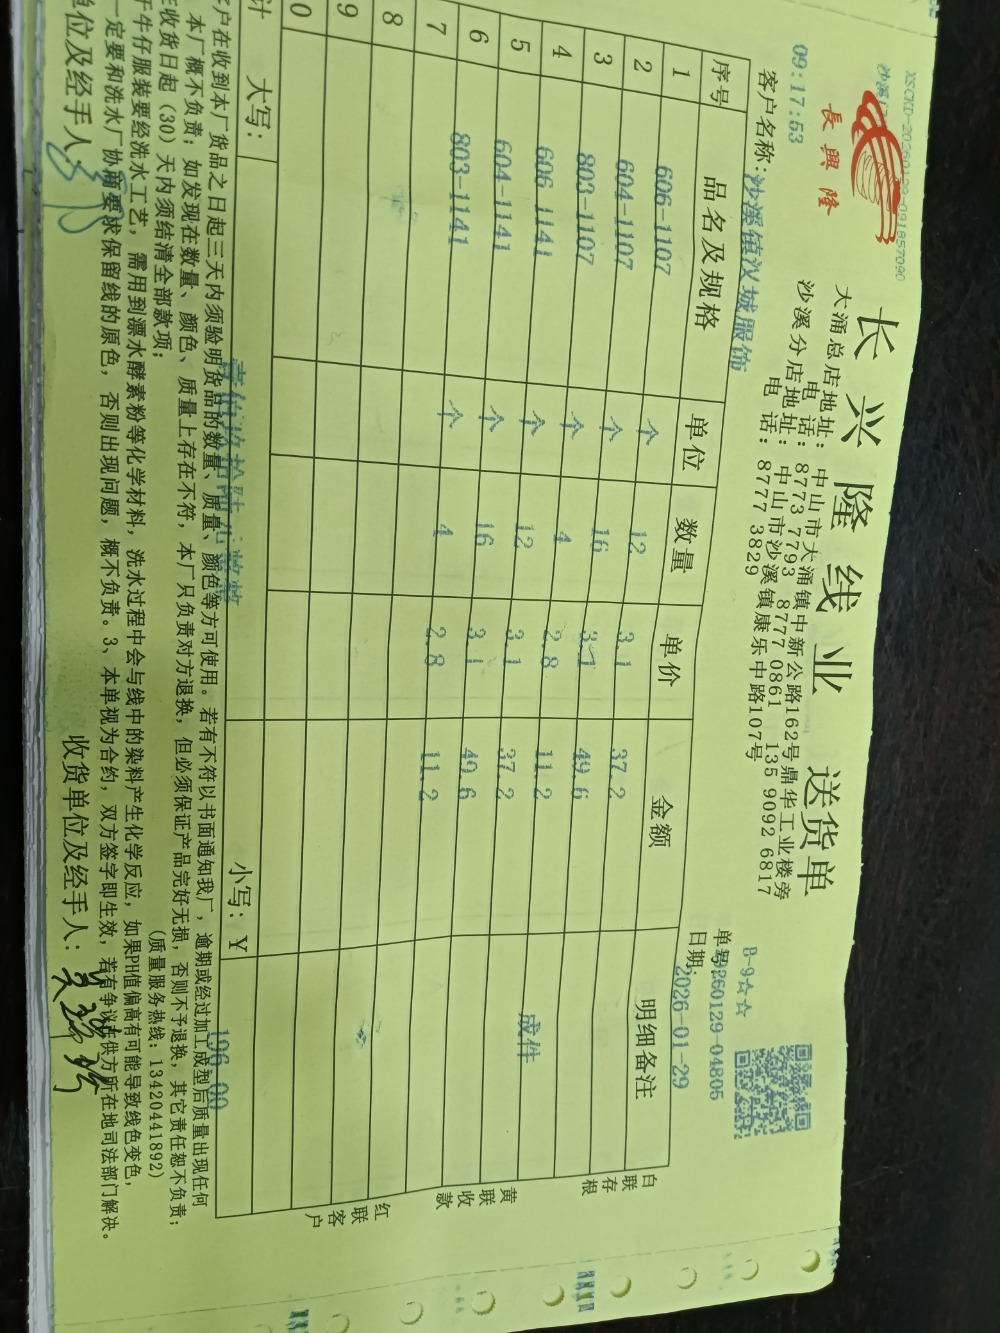 長興隆
长兴隆线业 送货单
大涌总店地址: 中山市大涌镇中新公路162号鼎华工业楼旁
电 话: 8773 7793 8777 0861 135 9092 6817
沙溪分店地址: 中山市沙溪镇康乐中路107号
电 话: 8777 3829
09:17:53
B-9☆☆
单号:
260129-04805
客户名称: 沙溪镇汉城服饰
日期: 2026-01-29
序号 品名及规格 单位 数量 单价 金额 明细备注
1 606-1107 个 12 3.1 37.2
2 604-1107 个 16 3.1 49.6
3 803-1107 个 4 2.8 11.2
4 606-1141 个 12 3.1 37.2 成件
5 604-1141 个 16 3.1 49.6
6 803-1141 个 4 2.8 11.2
7
8
9
0
计 大写: 小写: ¥ 196.00
白联存根
黄联收款
红联客户
户在收到本厂货品之日起三天内须验明货品的数量、质量、颜色等方可使用。若有不符以书面通知我厂, 逾期或经过加工成型后质量出现任何
本厂概不负责; 如发现在数量、颜色、质量上存在不符, 本厂只负责对方退换, 但必须保证产品完好无损, 否则不予退换, 其它责任恕不负责;
收货日起 (30) 天内须结清全部款项; (质量服务热线: 13420441892)
牛仔服装要经洗水工艺, 需用到漂水酵素粉等化学材料, 洗水过程中会与线中的染料产生化学反应, 如果PH值偏高有可能导致线色变色,
定要和洗水厂协商要求保留线的原色, 否则出现问题, 概不负责。3、本单视为合约, 双方签字即生效, 若有争议在供方所在地司法部门解决。
单位及经手人: 收货单位及经手人: